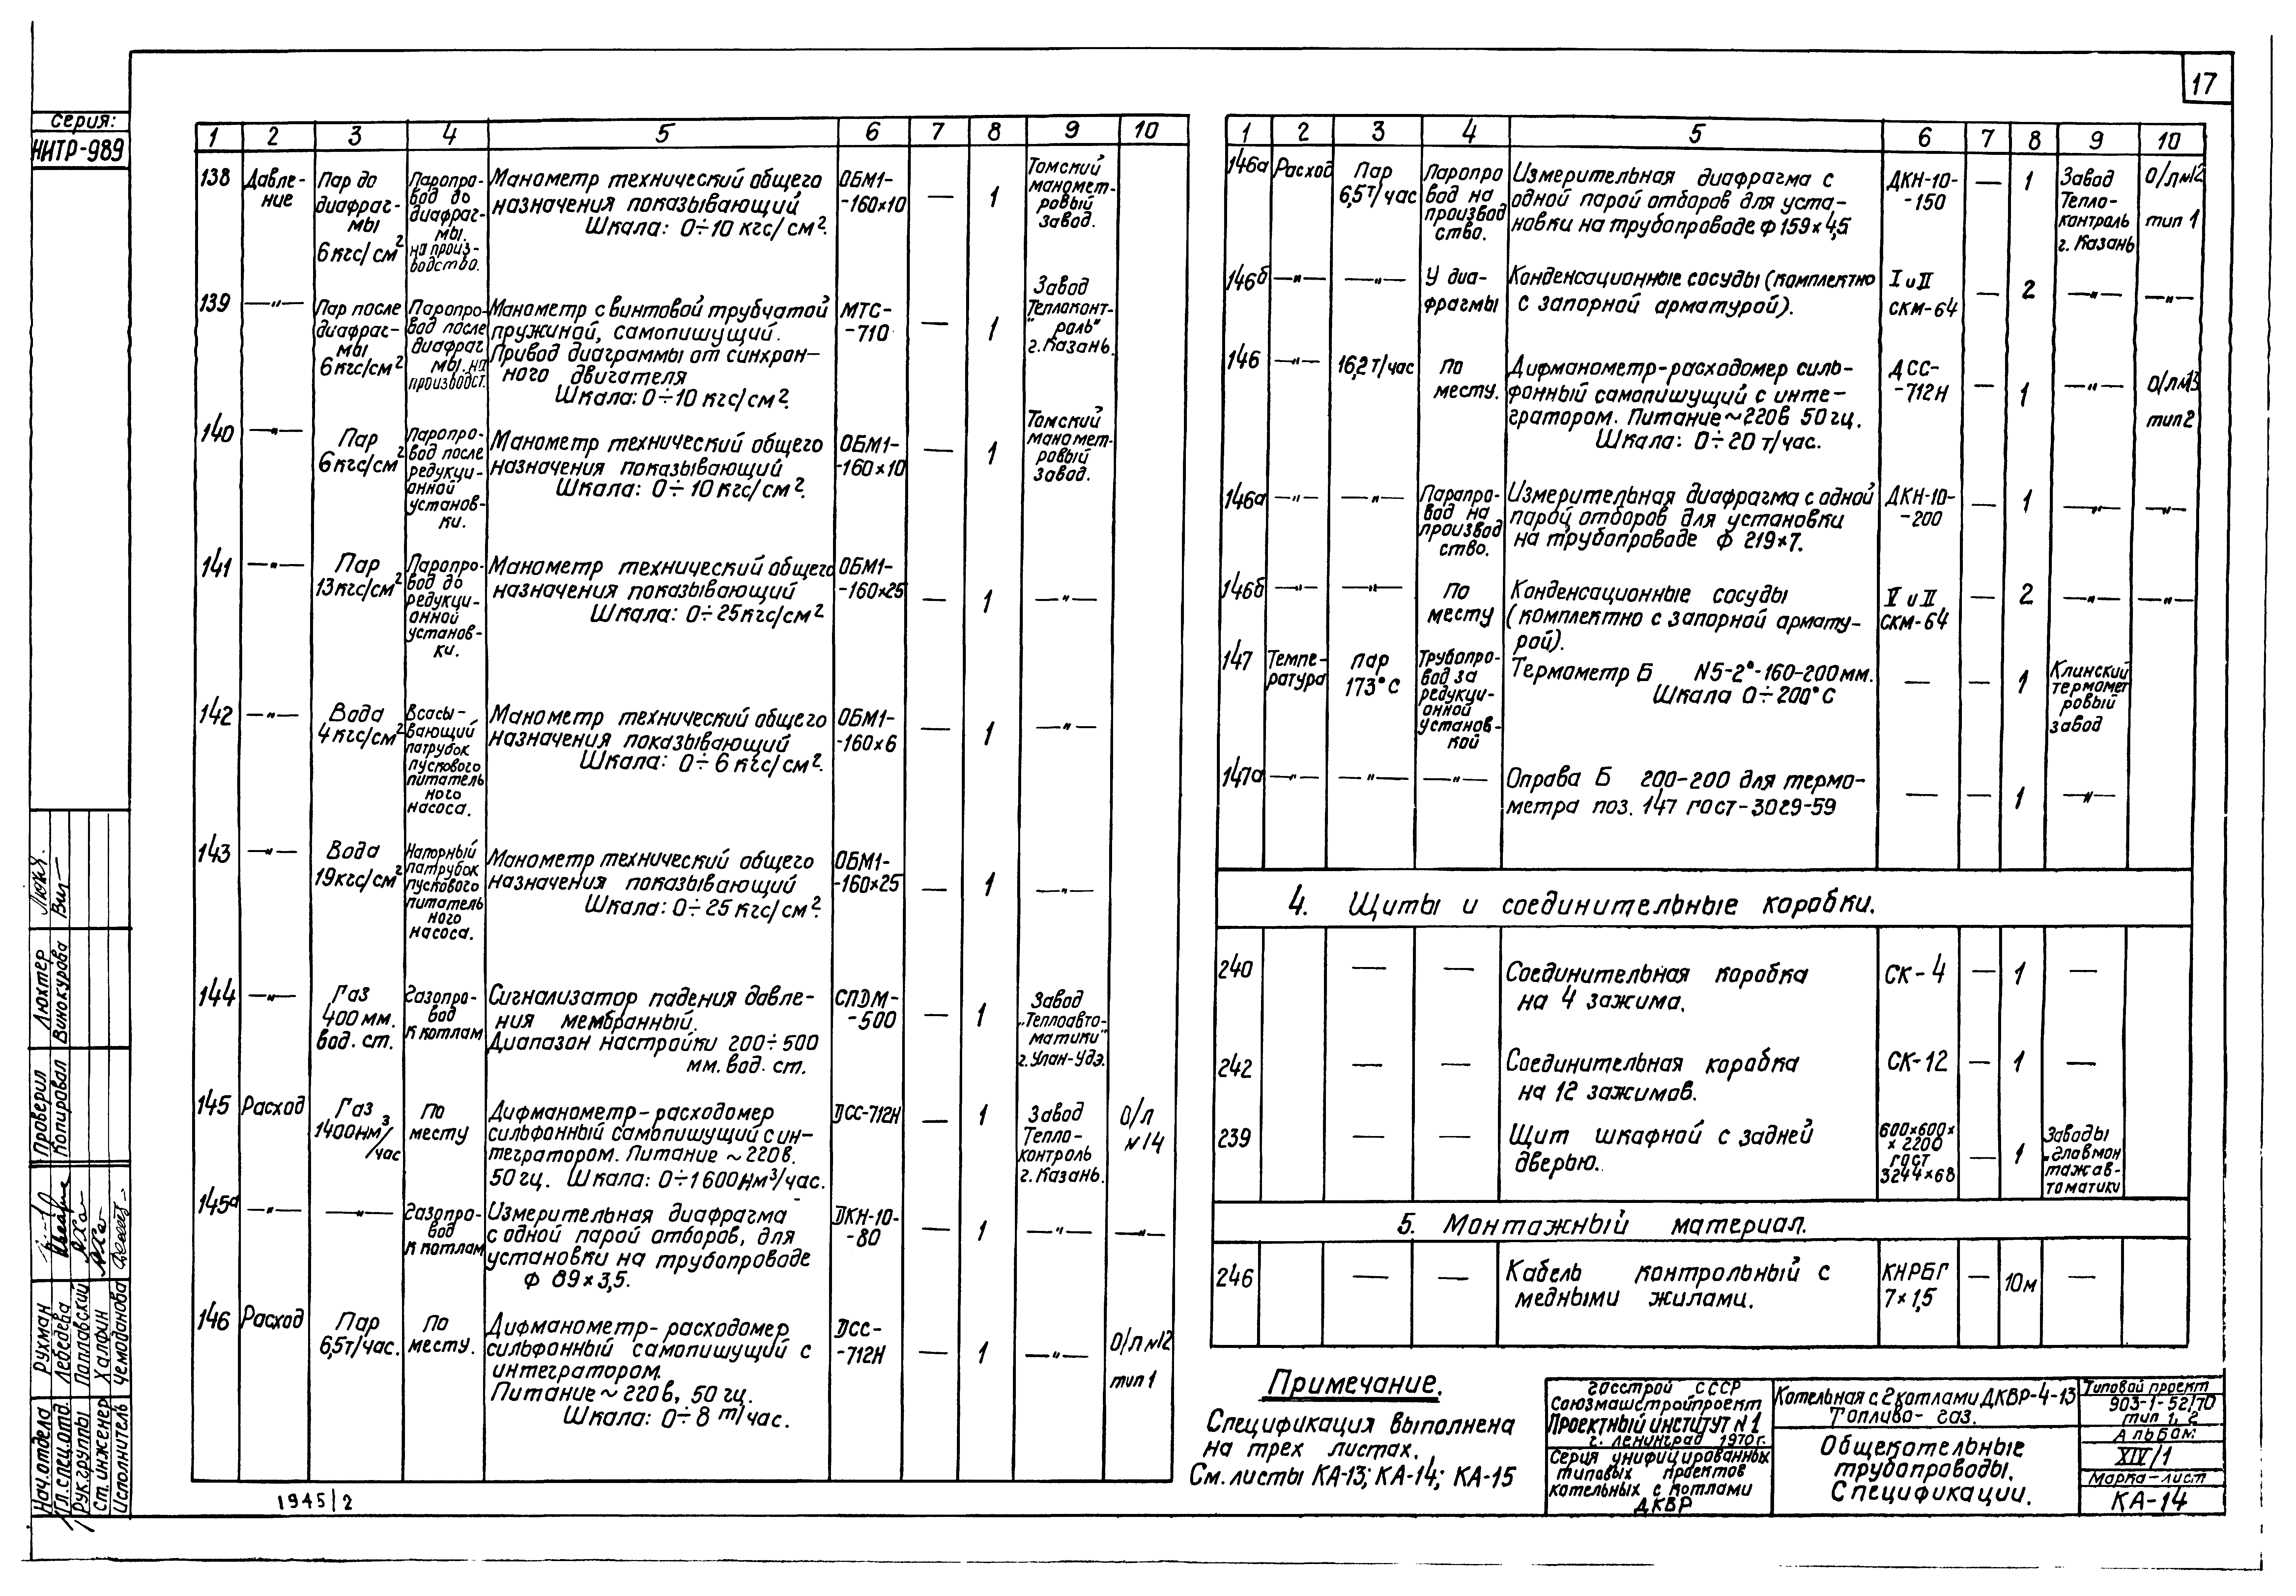 17
серия:
НИТР-989
1 2 3 4 5 6 7 8 9 10
138 Давле-
ние
Пар до
диафраг-
мы
6 кгс/см²
Паропро-
вод до
диафраг-
мы.
на произ-
водство.
Манометр технический общего
назначения показывающий
Шкала: 0÷10 кгс/см².
ОБМ1-
-160×10
— 1
Томский
маномет-
ровый
завод.
139 —„—
Пар после
диафраг-
мы
6кгс/см²
Паропро-
вод после
диафраг
мы. на
производст.
Манометр с винтовой трубчатой
пружиной, самопишущий.
Привод диаграммы от синхрон-
ного двигателя
Шкала: 0÷10 кгс/см².
МТС-
-710
— 1
Завод
"Теплоконт-
роль"
г. Казань.
140 —„—
Пар
6кгс/см²
Паропро-
вод после
редукци-
онной
установ-
ки.
Манометр технический общего
назначения показывающий
Шкала: 0÷10кгс/см².
ОБМ1-
-160×10
— 1
Томский
маномет-
ровый
завод.
141 —„—
Пар
13кгс/см²
Паропро-
вод до
редукци-
онной
установ-
ки.
Манометр технический общего
назначения показывающий
Шкала: 0÷25кгс/см²
ОБМ1-
-160×25
— 1 —„—
142 —„—
Вода
4кгс/см²
Всасы-
вающий
патрубок
пускового
питатель
ного
насоса.
Манометр технический общего
назначения показывающий
Шкала: 0÷6 кгс/см².
ОБМ1-
-160×6
— 1 —„—
143 —„—
Вода
19кгс/см²
Напорный
патрубок
пускового
питатель
ного
насоса.
Манометр технический общего
назначения показывающий
Шкала: 0÷25 кгс/см².
ОБМ1-
-160×25
— 1 —„—
144 —„—
Газ
400 мм.
вод. ст.
Газопро-
вод
к котлам
Сигнализатор падения давле-
ния мембранный.
Диапазон настройки 200÷500
мм. вод. ст.
СПДМ-
-500
— 1
Завод
„Теплоавто-
матики"
г. Улан-Удэ.
145 Расход
Газ
1400нм³/
/час
По
месту
Дифманометр-расходомер
сильфонный самопишущий с ин-
тегратором. Питание ~ 220в.
50 гц. Шкала: 0÷1600нм³/час.
DСС-712Н
— 1
Завод
Тепло-
контроль
г. Казань.
О/Л
№14
145а —„— —„—
Газопро-
вод
к котлам
Измерительная диафрагма
с одной парой отборов, для
установки на трубопроводе
Ф 89×3,5.
DКН-10-
-80
— 1 —„— —„—
146 Расход
Пар
6,5т/час.
По
месту.
Дифманометр-расходомер
сильфонный самопишущий с
интегратором.
Питание ~ 220 в, 50 гц.
Шкала: 0÷8 т/час.
DСС-
-712Н
— 1 —„—
О/Л №12
тип 1
1 2 3 4 5 6 7 8 9 10
146а Расход
Пар
6,5т/час
Паропро
вод на
производ
ство.
Измерительная диафрагма с
одной парой отборов для уста-
новки на трубопроводе ф 159×4,5
ДКН-10-
-150
— 1
Завод
Тепло-
контроль
г. Казань
О/Л №12
тип 1
146б —„— —„—
У диа-
фрагмы
Конденсационные сосуды (комплектно
с запорной арматурой).
I и II
СКМ-64
— 2 —„— —„—
146 —„— 16,2 т/час
По
месту.
Дифманометр-расходомер силь-
фонный самопишущий с инте-
гратором. Питание ~220в 50 гц.
Шкала: 0÷20 т/час.
ДСС-
-712Н
— 1 —„—
О/Л №13
тип 2
146а —„— —„—
Паропро-
вод на
производ
ство.
Измерительная диафрагма с одной
парой отборов для установки
на трубопроводе ф 219×7.
ДКН-10-
-200
— 1 —„— —„—
146б —„— —„—
По
месту
Конденсационные сосуды
(комплектно с запорной армату-
рой).
V и II
СКМ-64
— 2 —„— —„—
147 Темпе-
ратура
Пар
173°С
Трубопро-
вод за
редукци-
онной
установ-
кой
Термометр Б N5-2°-160-200мм.
Шкала 0÷200°С
— — 1
Клинский
термомет
ровый
завод
147а —„— —„— —„—
Оправа Б 200-200 для термо-
метра поз. 147 ГОСТ-3029-59
— — 1 —„—
4. Щиты и соединительные коробки.
240 — —
Соединительная коробка
на 4 зажима.
СК-4 — 1 —
242 — —
Соединительная коробка
на 12 зажимов.
СК-12 — 1 —
239 — —
Щит шкафной с задней
дверью.
600×600×
× 2200
ГОСТ
3244×68
— 1
Заводы
„Главмон
тажав-
томатики
5. Монтажный материал.
246 — —
Кабель контрольный с
медными жилами.
КНРБГ
7×1,5
— 10м —
Примечание.
Спецификация выполнена
на трех листах.
См. листы КА-13; КА-14; КА-15
Госстрой СССР
Союзмашстройпроект
Проектный институт №1
г. Ленинград 1970г.
Серия унифицированных
типовых проектов
котельных с котлами
ДКВР
Котельная с 2 котлами ДКВР-4-13
Топливо- газ.
Общекотельные
трубопроводы.
Спецификации.
Типовой проект
903-1-52/70
тип 1, 2
Альбом:
XIV/1
Марка-лист
КА-14
1945/2
Нач. отдела Рухман
Гл. спец. отд. Лебедева
Рук. группы Поплавский
Ст. инженер Халфин
Исполнитель Чемоданова
Проверил Люхтер
Копировал Винокурова